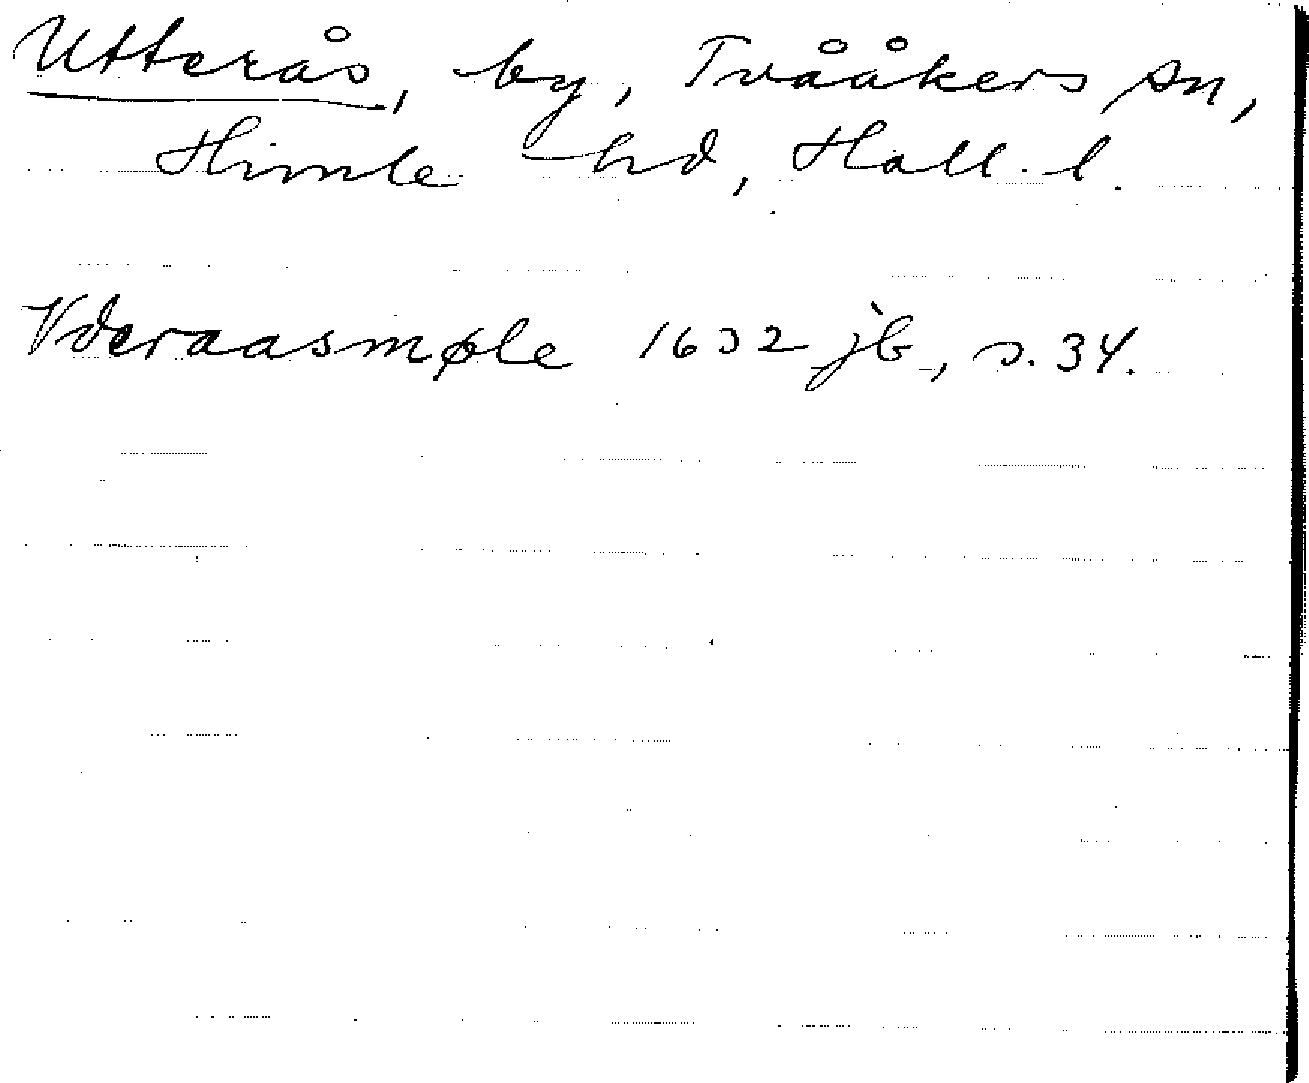 Utterås, by, Tvååkers sn,
Himle hd, Hall. l.
Vderaasmøle 1632 jb, s. 34.